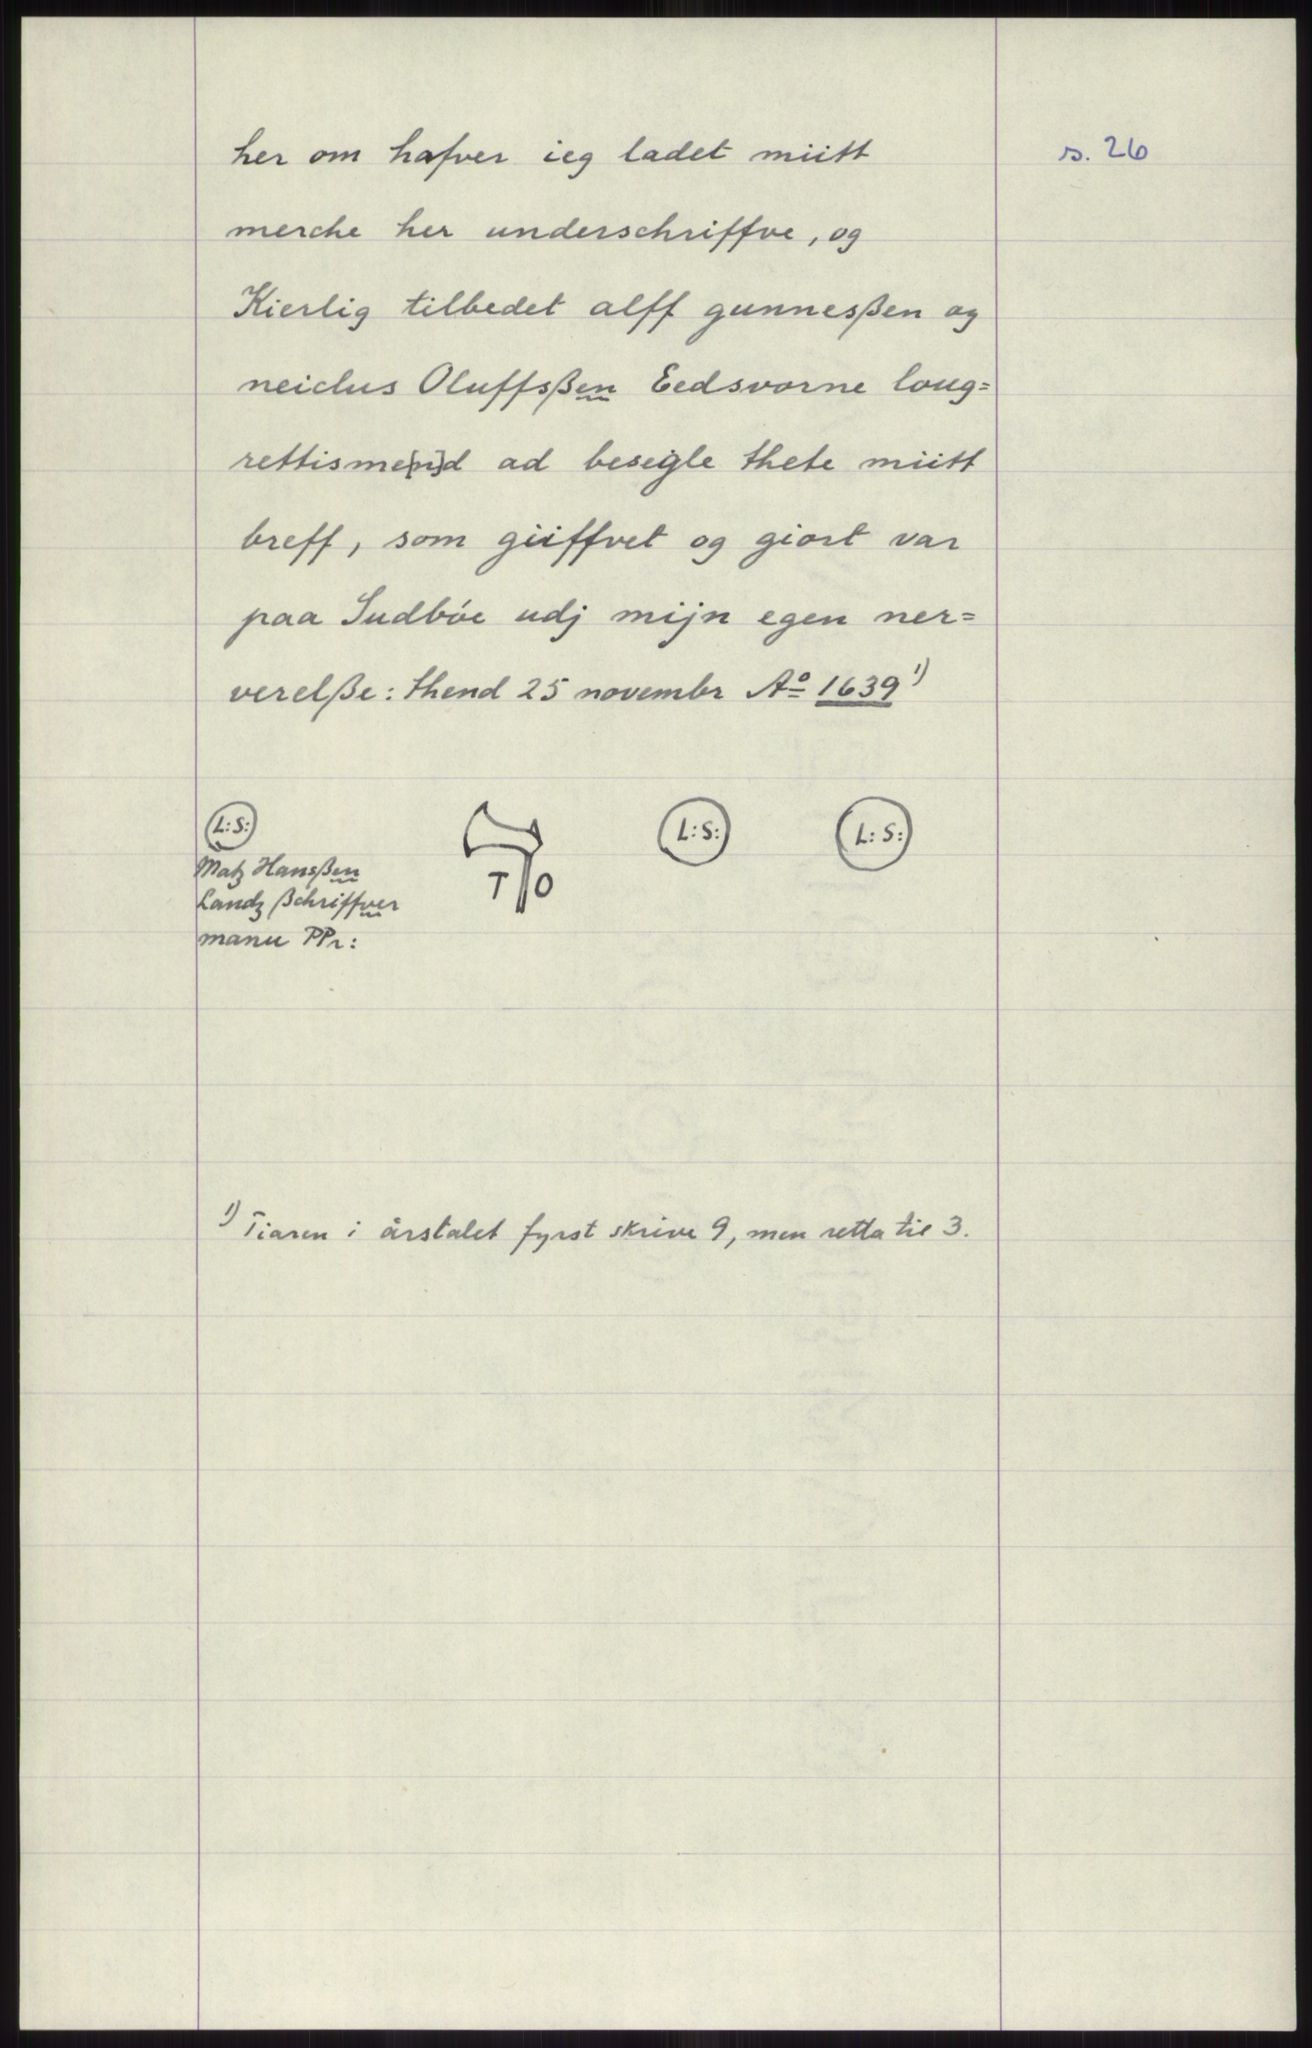 her om hafver ieg ladet miitt
s. 26
merche her underschriffve, og
Kierlig tilbedet alff gunnesßen og
neiclus Oluffsßen Eedsvorne loug=
rettisme[n]d ad besegle thete miitt
breff, som giiffvet og giort var
paa Sudbøe udj mijn egen ner=
verelße: thend 25 novembr Aº 1639 ¹)
L:S:
L:S:
L:S:
Matz Hansßen
T O
Landz ßchriffver
manu PPr:
¹) Tiaren i årstalet fyrst skrive 9, men retta til 3.